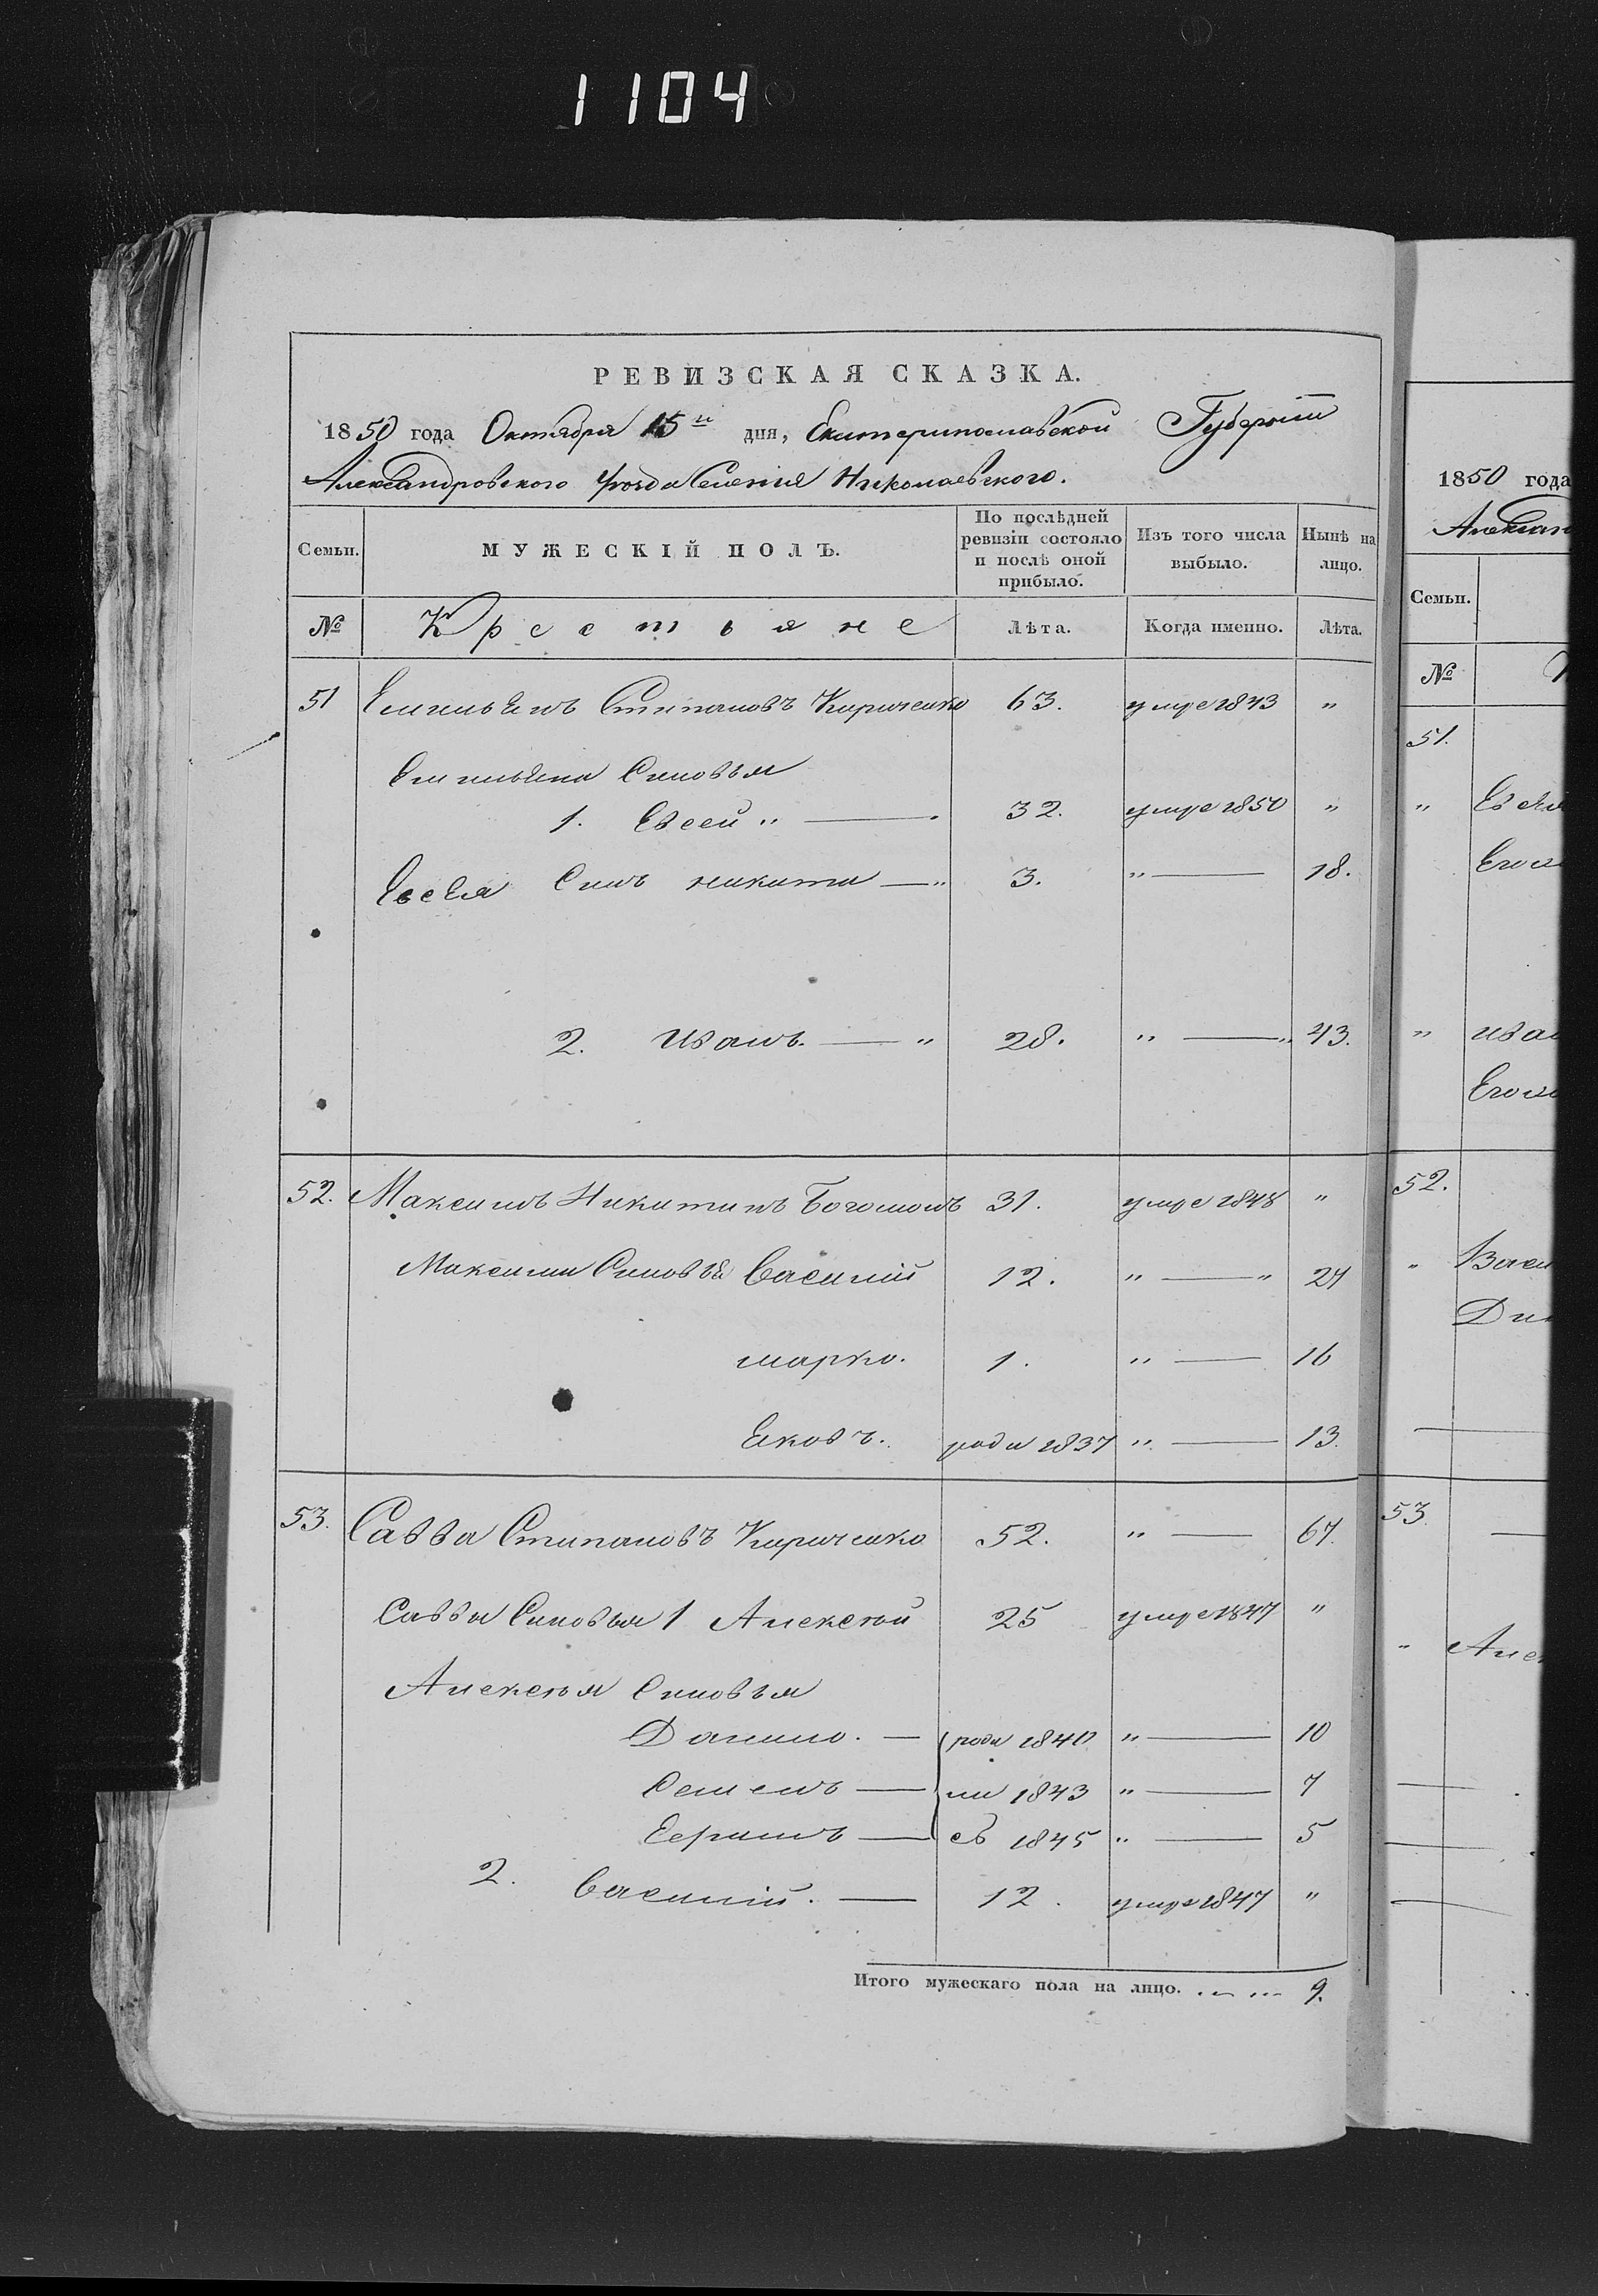 1104
РЕВИЗСКАЯ СКАЗКА.
1850 года Октября 15го дня, Екатеринославской Губернии
Александровского уезда Селения Николаевского.
Семьи. МУЖЕСКІЙ ПОЛЪ. По послѣдней ревизіи состояло и послѣ оной прибыло. Изъ того числа выбыло. Нынѣ на лицо.
№ Крестьяне Лѣта. Когда именно. Лѣта.
51 Емильянъ Стипановъ Кириченко 63. умре 1843 "
Емильяна Синовья
1. Евсей " — 32. умре 1850 "
Евсея Синъ никита — " 3. " — 18.
2. Иванъ. — " 28. " — " 43.
52. Максимъ Никитинъ Богомолъ 31. умре 1848 "
Максима Синовья Василий 12. " — " 27
марко. 1. " — 16
Яковъ. роди 1837 " — 13.
53. Савва Стипановъ Кириченко 52. " — 67.
Саввы Синовья 1 Алексѣй 25 умре 1847 "
Алексѣя Синовья
Данило. — роди 1840 " — 10
Семенъ — ли 1843 " — 7
— съ 1845 " — 5
2. Василий. — 12. умре 1847 "
Итого мужескаго пола на лицо. 9.
1850 года
Семьи.
№
51.
"
"
52.
"
53
"